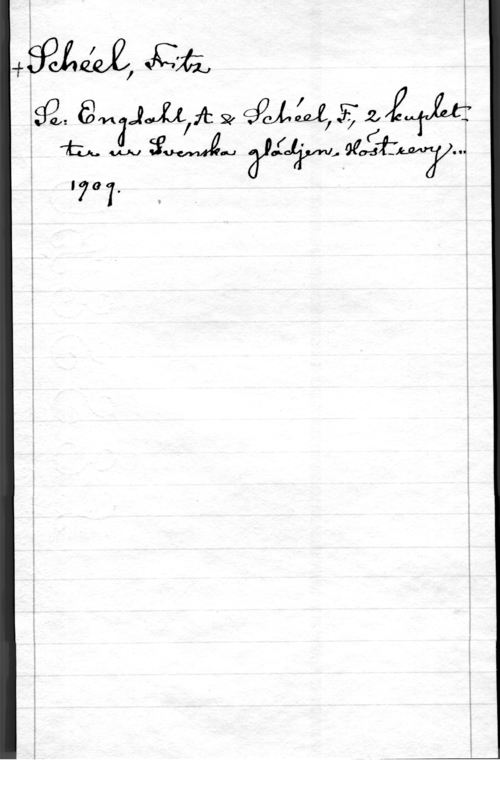 +Schéel, Fritz
Se: Engdahl, A & Schéel, F, 2 kuplet-
ter ur Svenska glädjen. Höstrevy...
1909.